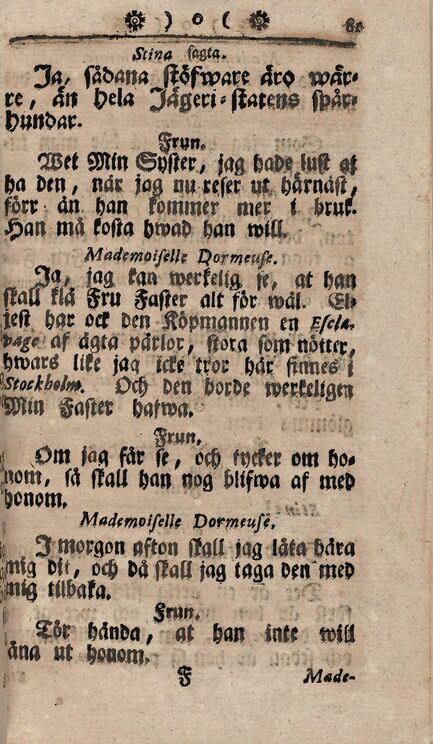 ) o ( 81
Stina sagta.
Ja, sådana stöfware äro wär-
re, än hela Jägeri-statens spår-
hundar.
Frun.
Wet Min Syster, jag hade lust at
ha den, när jag nu reser ut härnäst,
förr än han kommer mer i bruk.
Han må kosta hwad han will.
Mademoiselle Dormeuse.
Ja, jag kan werkelig se, at han
skall klä Fru Faster alt för wäl. El-
jest har ock den Köpmannen en Escla-
vage af ägta pärlor, stora som nötter,
hwars like jag icke tror här finnes i
Stockholm. Och den borde werkeligen
Min Faster hafwa.
Frun.
Om jag får se, och tycker om ho-
nom, så skall han nog blifwa af med
honom.
Mademoiselle Dormeuse.
I morgon afton skall jag låta bära
mig dit, och då skall jag taga den med
mig tilbaka.
Frun.
Tör hända, at han inte will
låna ut honom.
F Made-